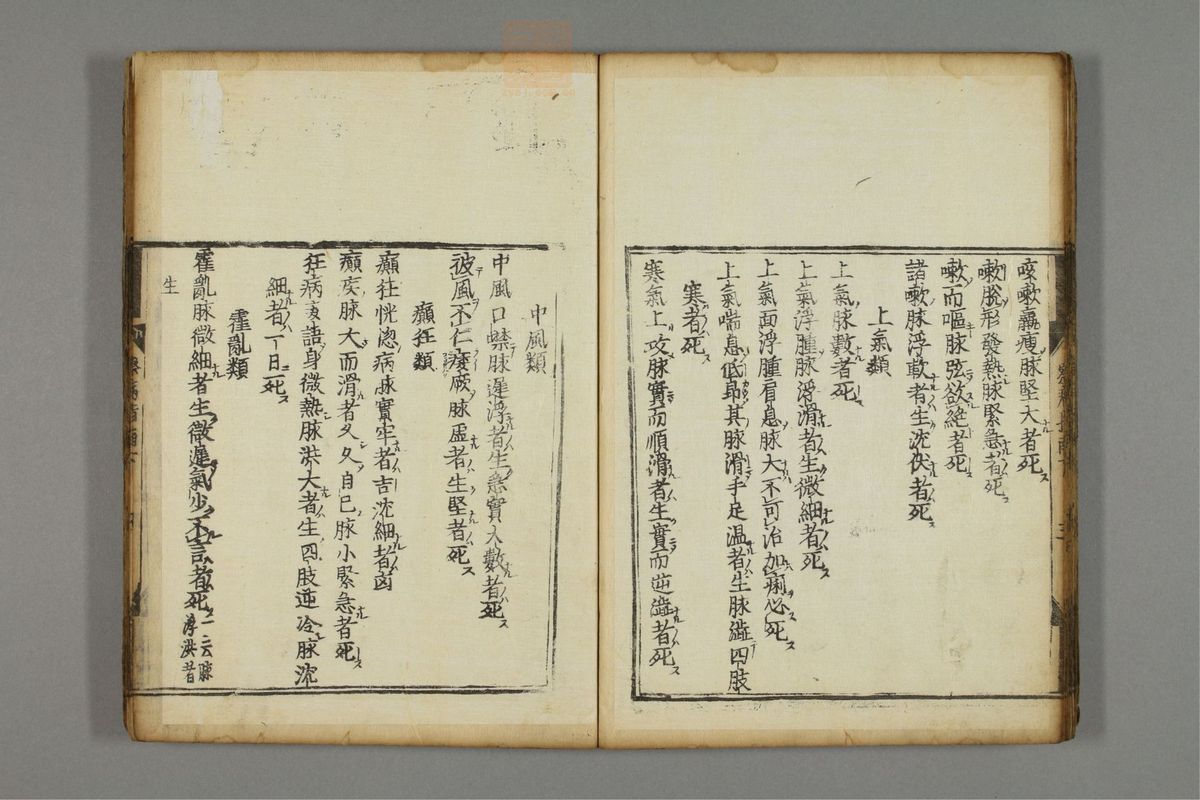 咳嗽羸瘦脉堅大者死
嗽脫形發熱脉緊急者死
嗽而嘔脉弦欲絕者死
諸嗽脉浮軟者生沈伏者死
上氣類
上氣脉數者死
上氣浮腫脉浮滑者生微細者死
上氣面浮腫肩息脉大不可治加痢必死
上氣喘息低昻其脉滑手足温者生脉澁四肢
寒者死
寒氣上攻脉實而順滑者生實而逆澁者死
中風類
中風口噤脉遲浮者生急實大數者死
彼風不仁痿厥脉虛者生堅者死
癲狂類
癲狂恍惚病脉實牢者吉沈細者凶
癲疾脉大而滑者久久自已脉小緊急者死
狂病妄語身微熱脉洪大者生四肢逆冷脉沈
細者一日死
霍亂類
霍亂脉微細者生微遲氣少不言者死一云脉浮洪者
生